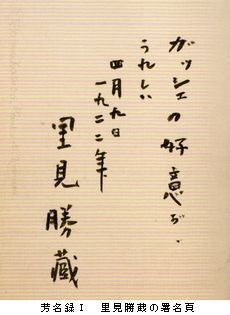 ガッシェの好意が、
うれしい
四月九日
一九二二年
里見勝蔵
芳名録Ⅰ 里見勝蔵の署名頁